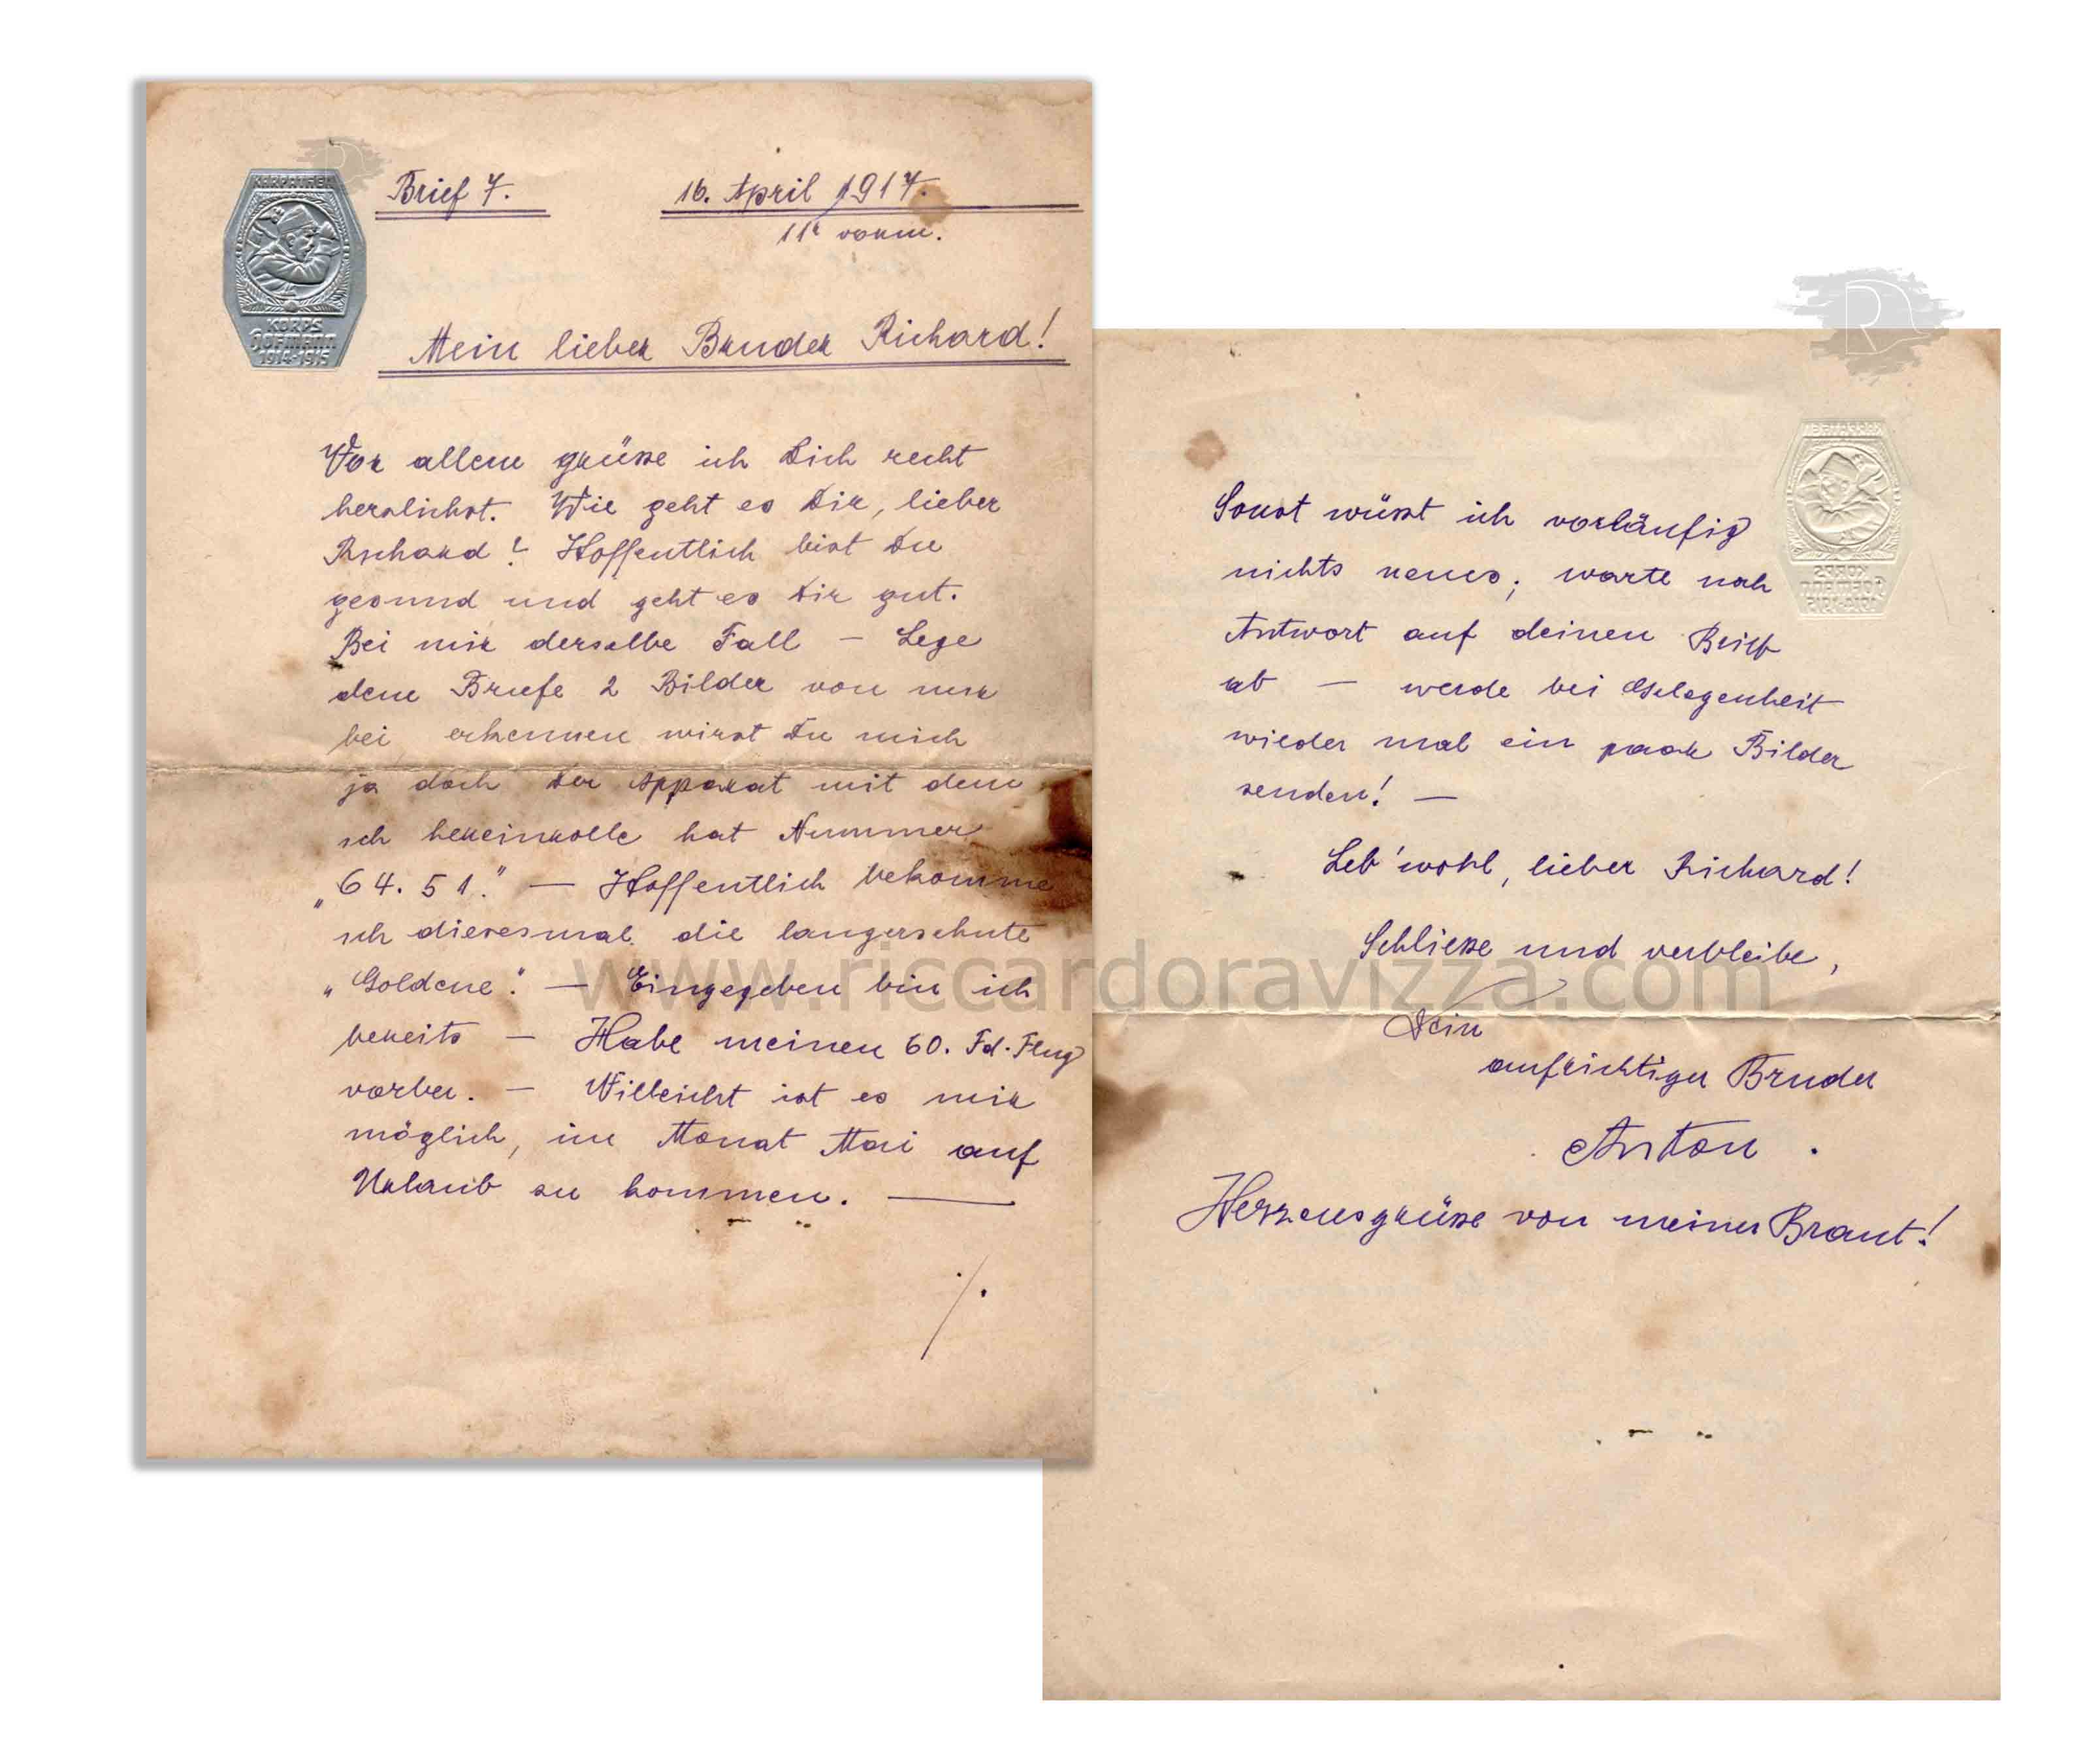 KARPATHEN
KORPS
HOFMANN
1914-1915
Brief 7.
16. April 1917.
11h vorm.
Mein lieber Bruder Richard!
Vor allem grüsse ich Dich recht
herzlichst. Wie geht es Dir, lieber
Richard? Hoffentlich bist Du
gesund und geht es Dir gut.
Bei mir derselbe Fall – Lege
dem Briefe 2 Bilder von mir
bei erkennen wirst Du mich
ja doch Der Apparat mit dem
ich hereinrolle hat Nummer
„64.51." — Hoffentlich bekomme
ich diesesmal die langersehnte
„Goldene". — Eingegeben bin ich
bereits — Habe meinen 60. Fd. Flug
vorbei. — Villeicht ist es mir
möglich, im Monat Mai auf
Urlaub zu kommen. —
./.
Sonst wüsst ich vorläufig
nichts neues; warte noch
Antwort auf deinen Brief
ab — werde bei Gelegenheit
wieder mal ein paar Bilder
senden! —
Leb' wohl, lieber Richard!
Schliesse und verbleibe,
Dein
aufrichtiger Bruder
Anton.
Herzensgrüsse von meiner Braut!
KARPATHEN
KORPS
HOFMANN
1914-1915
www.riccardoravizza.com
R
R